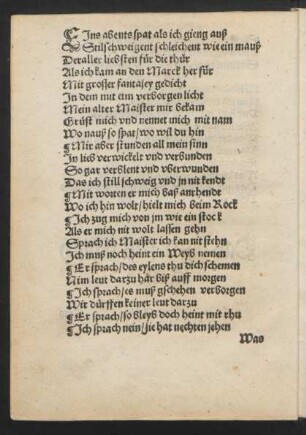 EIns abents spat als ich gieng auß
Stilschweigent schleichent wie ein mauß
Der aller liebsten für die thür
Als ich kam an den Marck her für
Mit grosser fantasey gedicht
In dem mit eim verborgen licht
Mein alter Maister mir bekam
Er růst mich vnd nennet mich mit nam
Wo nauß so spat/ wo wil du hin
¶ Mir aber stunden all mein sinn
In lieb verwickelt vnd verbunden
So gar verblent vnd vberwunden
Das ich still schweig vnd jn nit kendt
¶ Mit worten er mich baß anrhendt
Wo ich hin wolt/ hielt mich beim Rock
¶ Ich zug mich von jm wie ein stock
Als er mich nit wolt lassen gehn
Sprach ich Maister ich kan nit stehn
Ich muß noch heint ein Weyb nemen
¶ Er sprach/ des eylens thu dich schemen
Nim leut darzu här biß auff morgen
¶ Ich sprach/ es muß gschehen verborgen
Wir dürffen keiner leut darzu
¶ Er sprach/ so bleyb doch heint mit rhu
¶ Ich sprach nein/ sie hat nechten jehen
Was